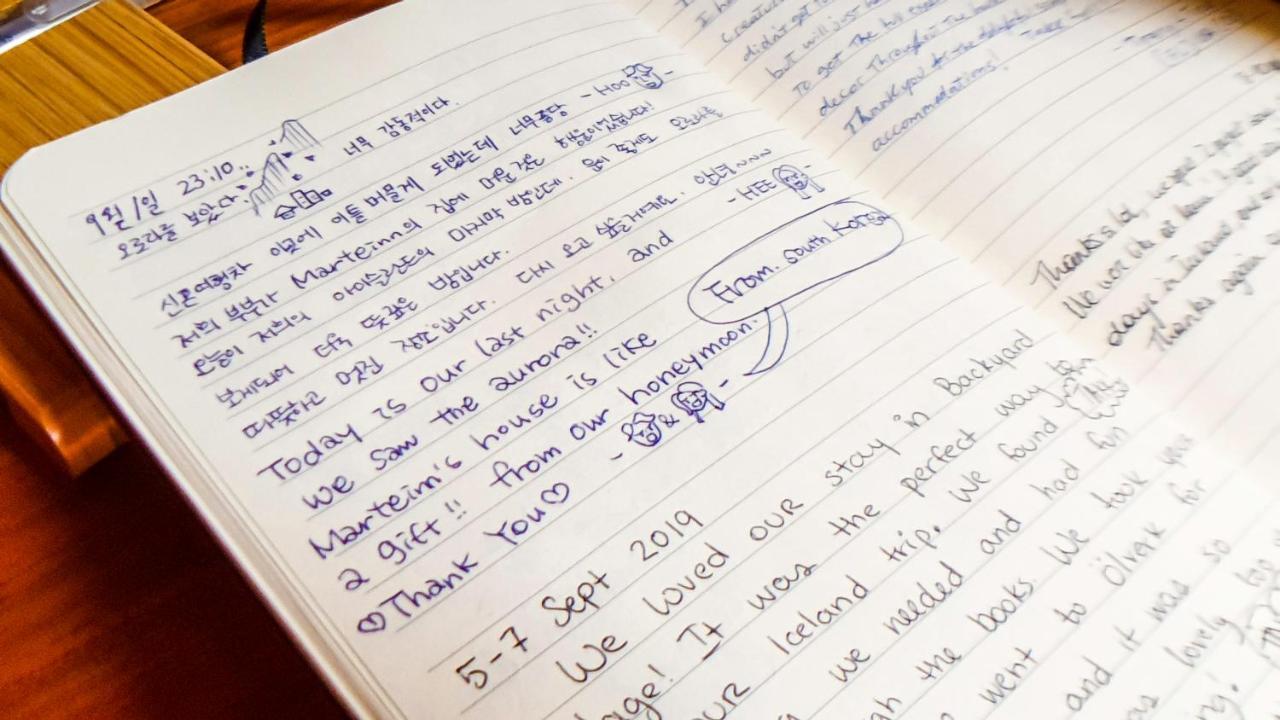 9월 1일 23:10..
오로라를 보았다. 너무 감동적이다.
신혼여행차 이곳에 이틀 머물게 되었는데 너무 좋당 -HOO-
저희 부부가 Marteinn의 집에 머문 것은 행운이었습니다!
오늘이 저희의 아이슬란드의 마지막 밤인데. 운이 좋게도 오로라를
보게되어 더욱 뜻깊은 밤입니다.
따뜻하고 멋진 집입니다. 다시 오고 싶을거예요. 안녕~~~
-HEE-
Today is our last night, and
we saw the aurora!!
Marteim's house is like
a gift!! from our honeymoon.
♡Thank You♡ - & -
From. South Korea
5-7 Sept 2019
We loved our stay in Backyard
age! It was the perfect way to
our Iceland trip. We found
we needed and had fun
the books. We took your
went to Ölverk for
and it was so
lovely
I h
creatur
didn't get to
but will just
to get the full
decor throughout the
Thank you for the
accommodations!
Thanks a lot, we
We were like at home
days in Iceland, and
Thanks again